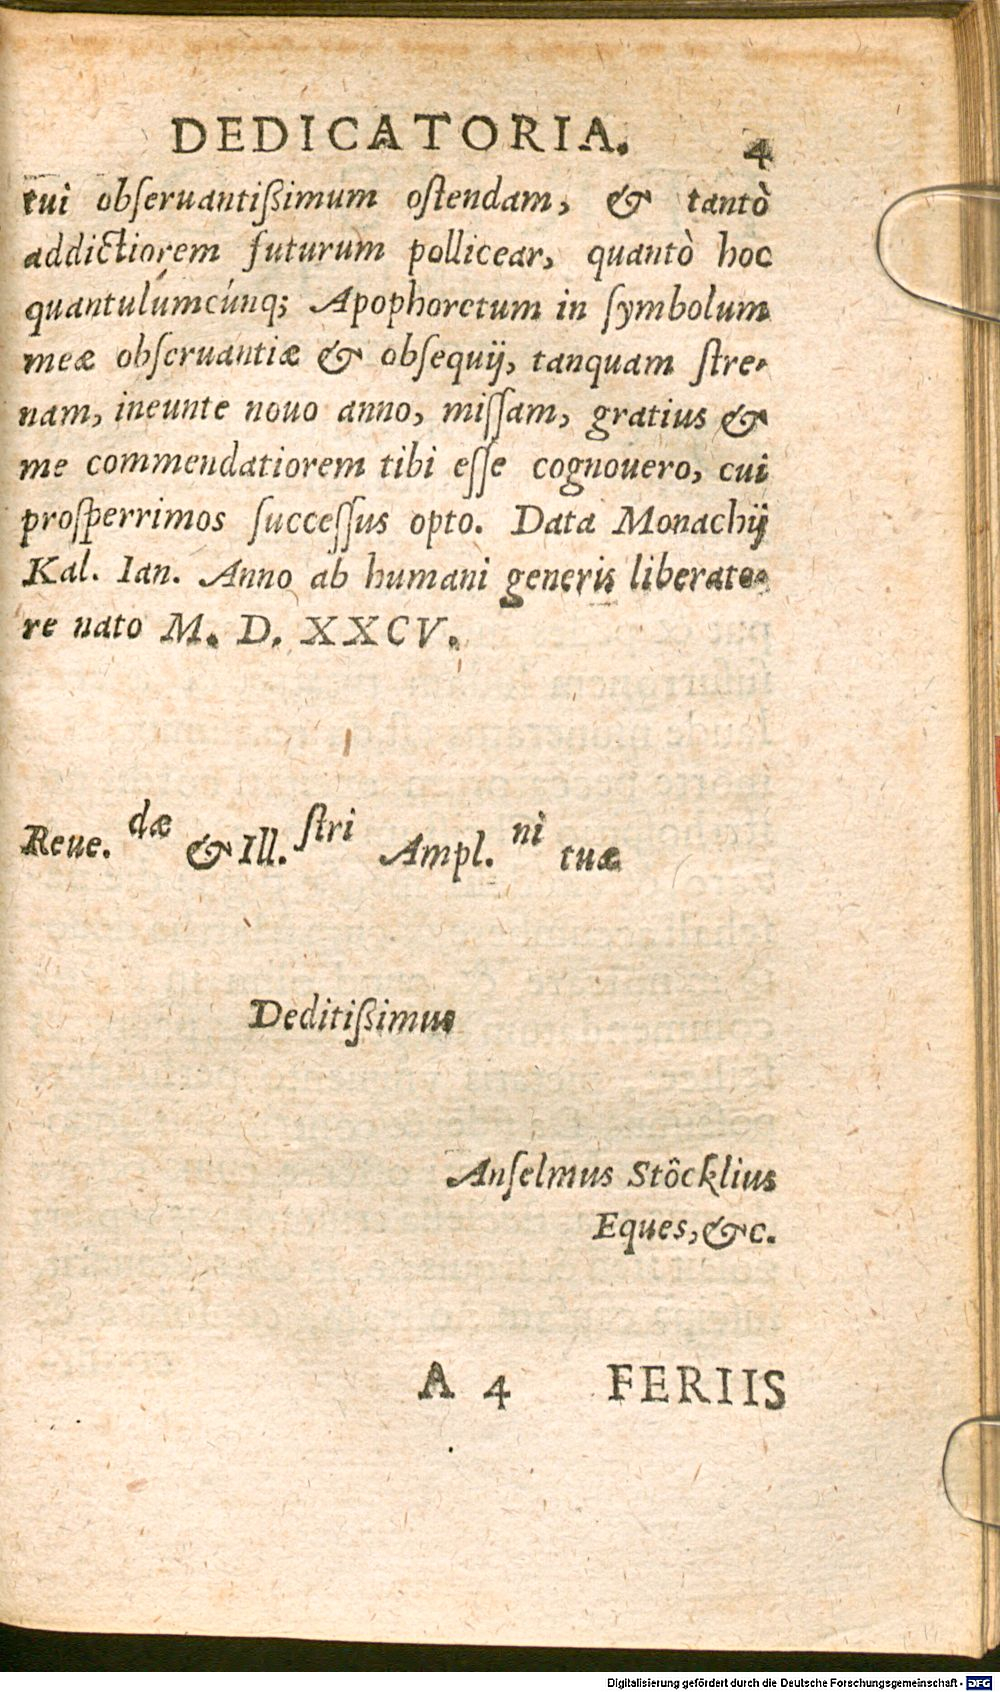 DEDICATORIA. 4
tui obſeruantiſsimum oſtendam, & tantò
addictiorem futurum pollicear, quantò hoc
quantulúmcúnq; Apophoretum in ſymbolum
meæ obſeruantiæ & obſequij, tanquam ſtre-
nam, ineunte nouo anno, miſſam, gratius &
me commendatiorem tibi eſſe cognouero, cui
proſperrimos ſucceſſus opto. Data Monachij
Kal. Ian. Anno ab humani generis liberato-
re nato M. D. XXCV.
Reue.dæ & Ill.ſtri Ampl.ni tuæ
Deditiſsimus
Anſelmus Stôcklius
Eques, &c.
A 4 FERIIS
Digitalisierung gefördert durch die Deutsche Forschungsgemeinschaft - DFG